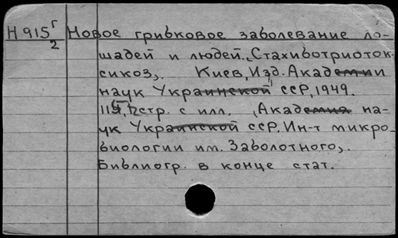 Н 915 г/2 Новое грибковое заболевание ло-
шадей и людей. „Стахиботриоток-
сикоз„. Киев, Изд. Академии
наук Украинской ССР, 1949.
с илл. „Академия на-
ук Украинской ССР. Ин-т микро-
биологии им. Заболотного„.
Библиогр. в конце стат.